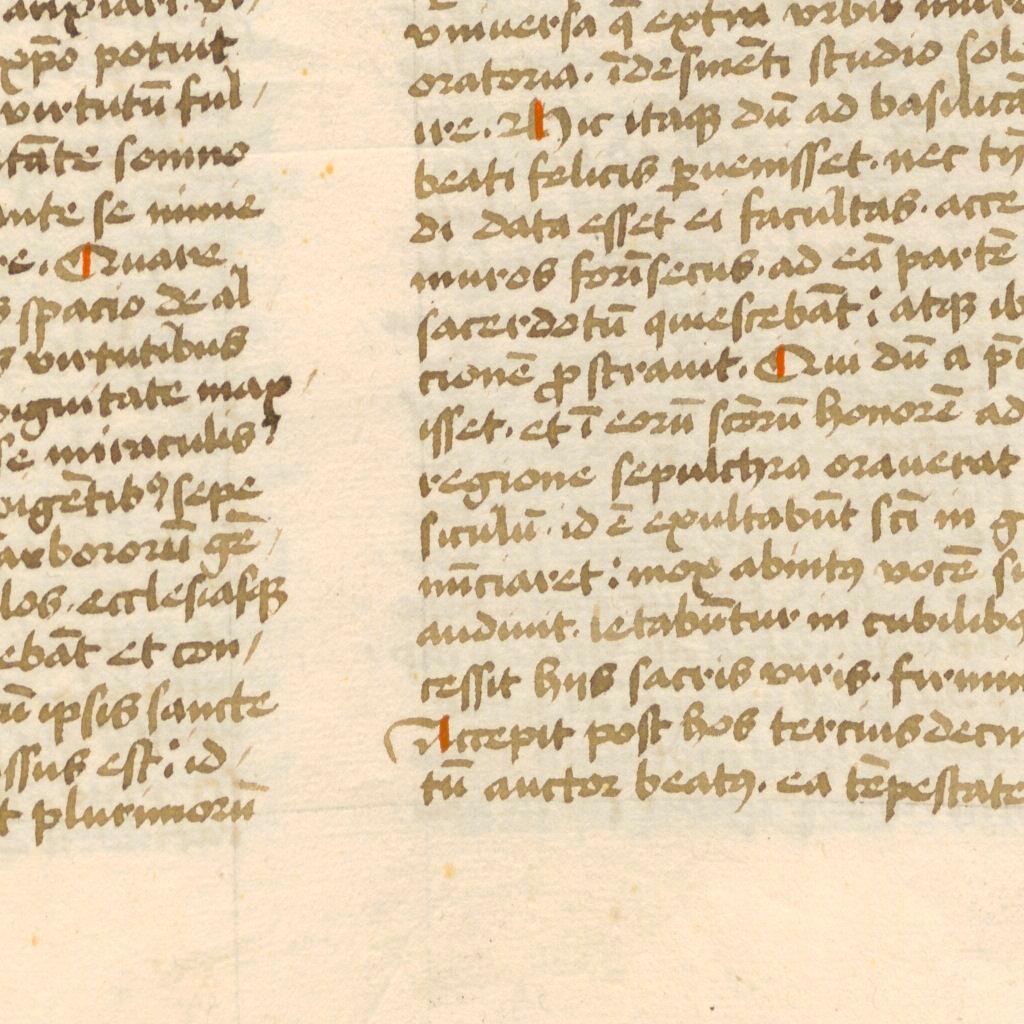 xp̄o potuit
virtutū ful/
tāte somno
ante se nimie
re. Quare
s spacio de al
s virtutibus
siguitate max
se miraculis
origētibꝰ sepe
arbororū gē/
los. ecclesiasqꝫ
ebāt et con/
ū ipsis sancte
issus est: id/
t plurimorū
vniuersa q̄ extra vrbis mure
oratoria. īdesinēti studio sole
ire. Hic itaqꝫ dū ad basilicā
beati felicis ꝑuenisset. nec tn̄
di data esset ei facultas. acce
muros forīsecus. ad eā partē
sacerdotū quiescebāt: atqꝫ ib
cionē ꝓstrauit. Qui dū a p̄c
isset. et ī eorū sc̄orū honorē ad
regione sepulchra orauerat
siculū. id ē exultabūt sc̄i in g
nūciaret: mox abintꝰ vocē su
audiuit. letabūtur in cubilibꝰ
cessit hijs sacris viris. firmin
Accepit post hos tercius decim
tū auctor beatꝰ. ea tēpestate